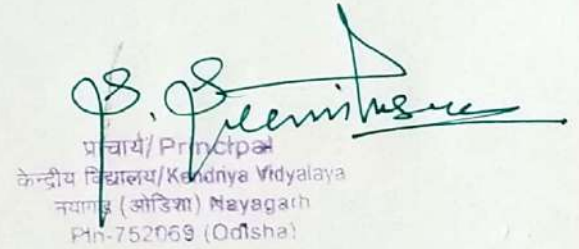 प्राचार्य/Principal
केन्द्रीय विद्यालय/Kendriya Vidyalaya
नयागढ़ (ओडिशा) Nayagarh
Pin-752069 (Odisha)